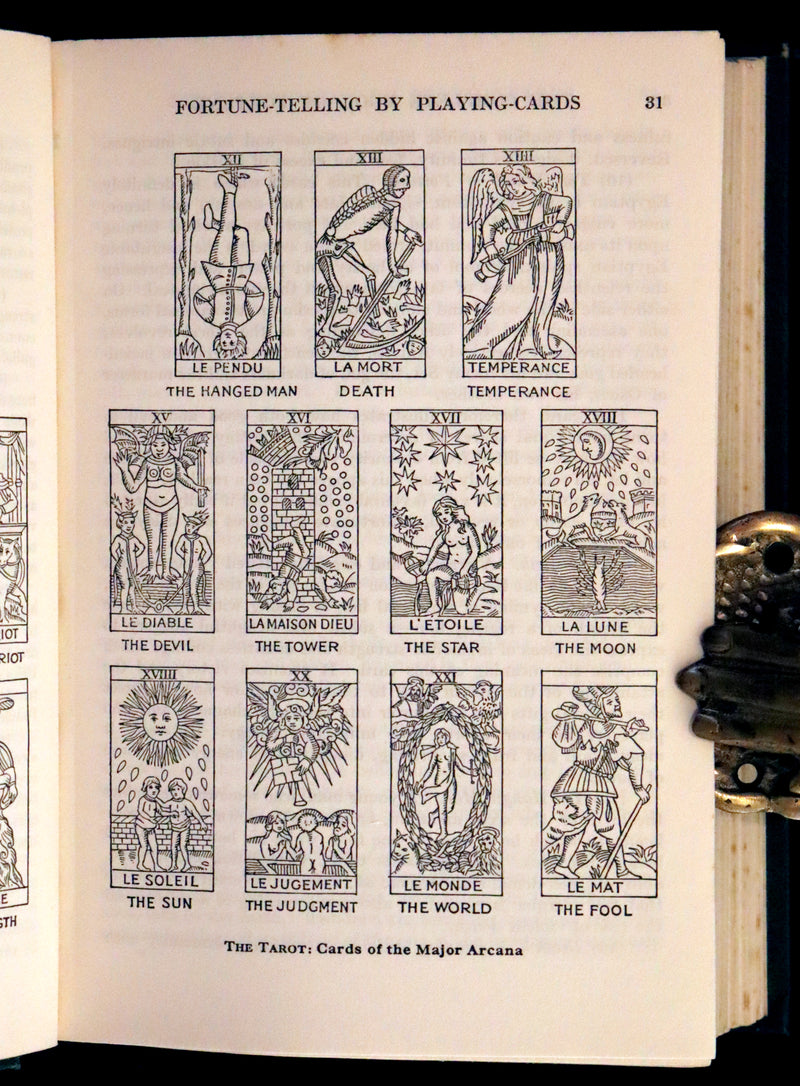 FORTUNE-TELLING BY PLAYING-CARDS 31
XII XIII XIIII
LE PENDU LA MORT TEMPERANCE
THE HANGED MAN DEATH TEMPERANCE
XV XVI XVII XVIII
LE DIABLE LA MAISON DIEU L'ÉTOILE LA LUNE
IOT
THE DEVIL THE TOWER THE STAR THE MOON
RIOT
XVIIII XX XXI
LE SOLEIL LE JUGEMENT LE MONDE LE MAT
E
THE SUN THE JUDGMENT THE WORLD THE FOOL
GTH
THE TAROT: Cards of the Major Arcana